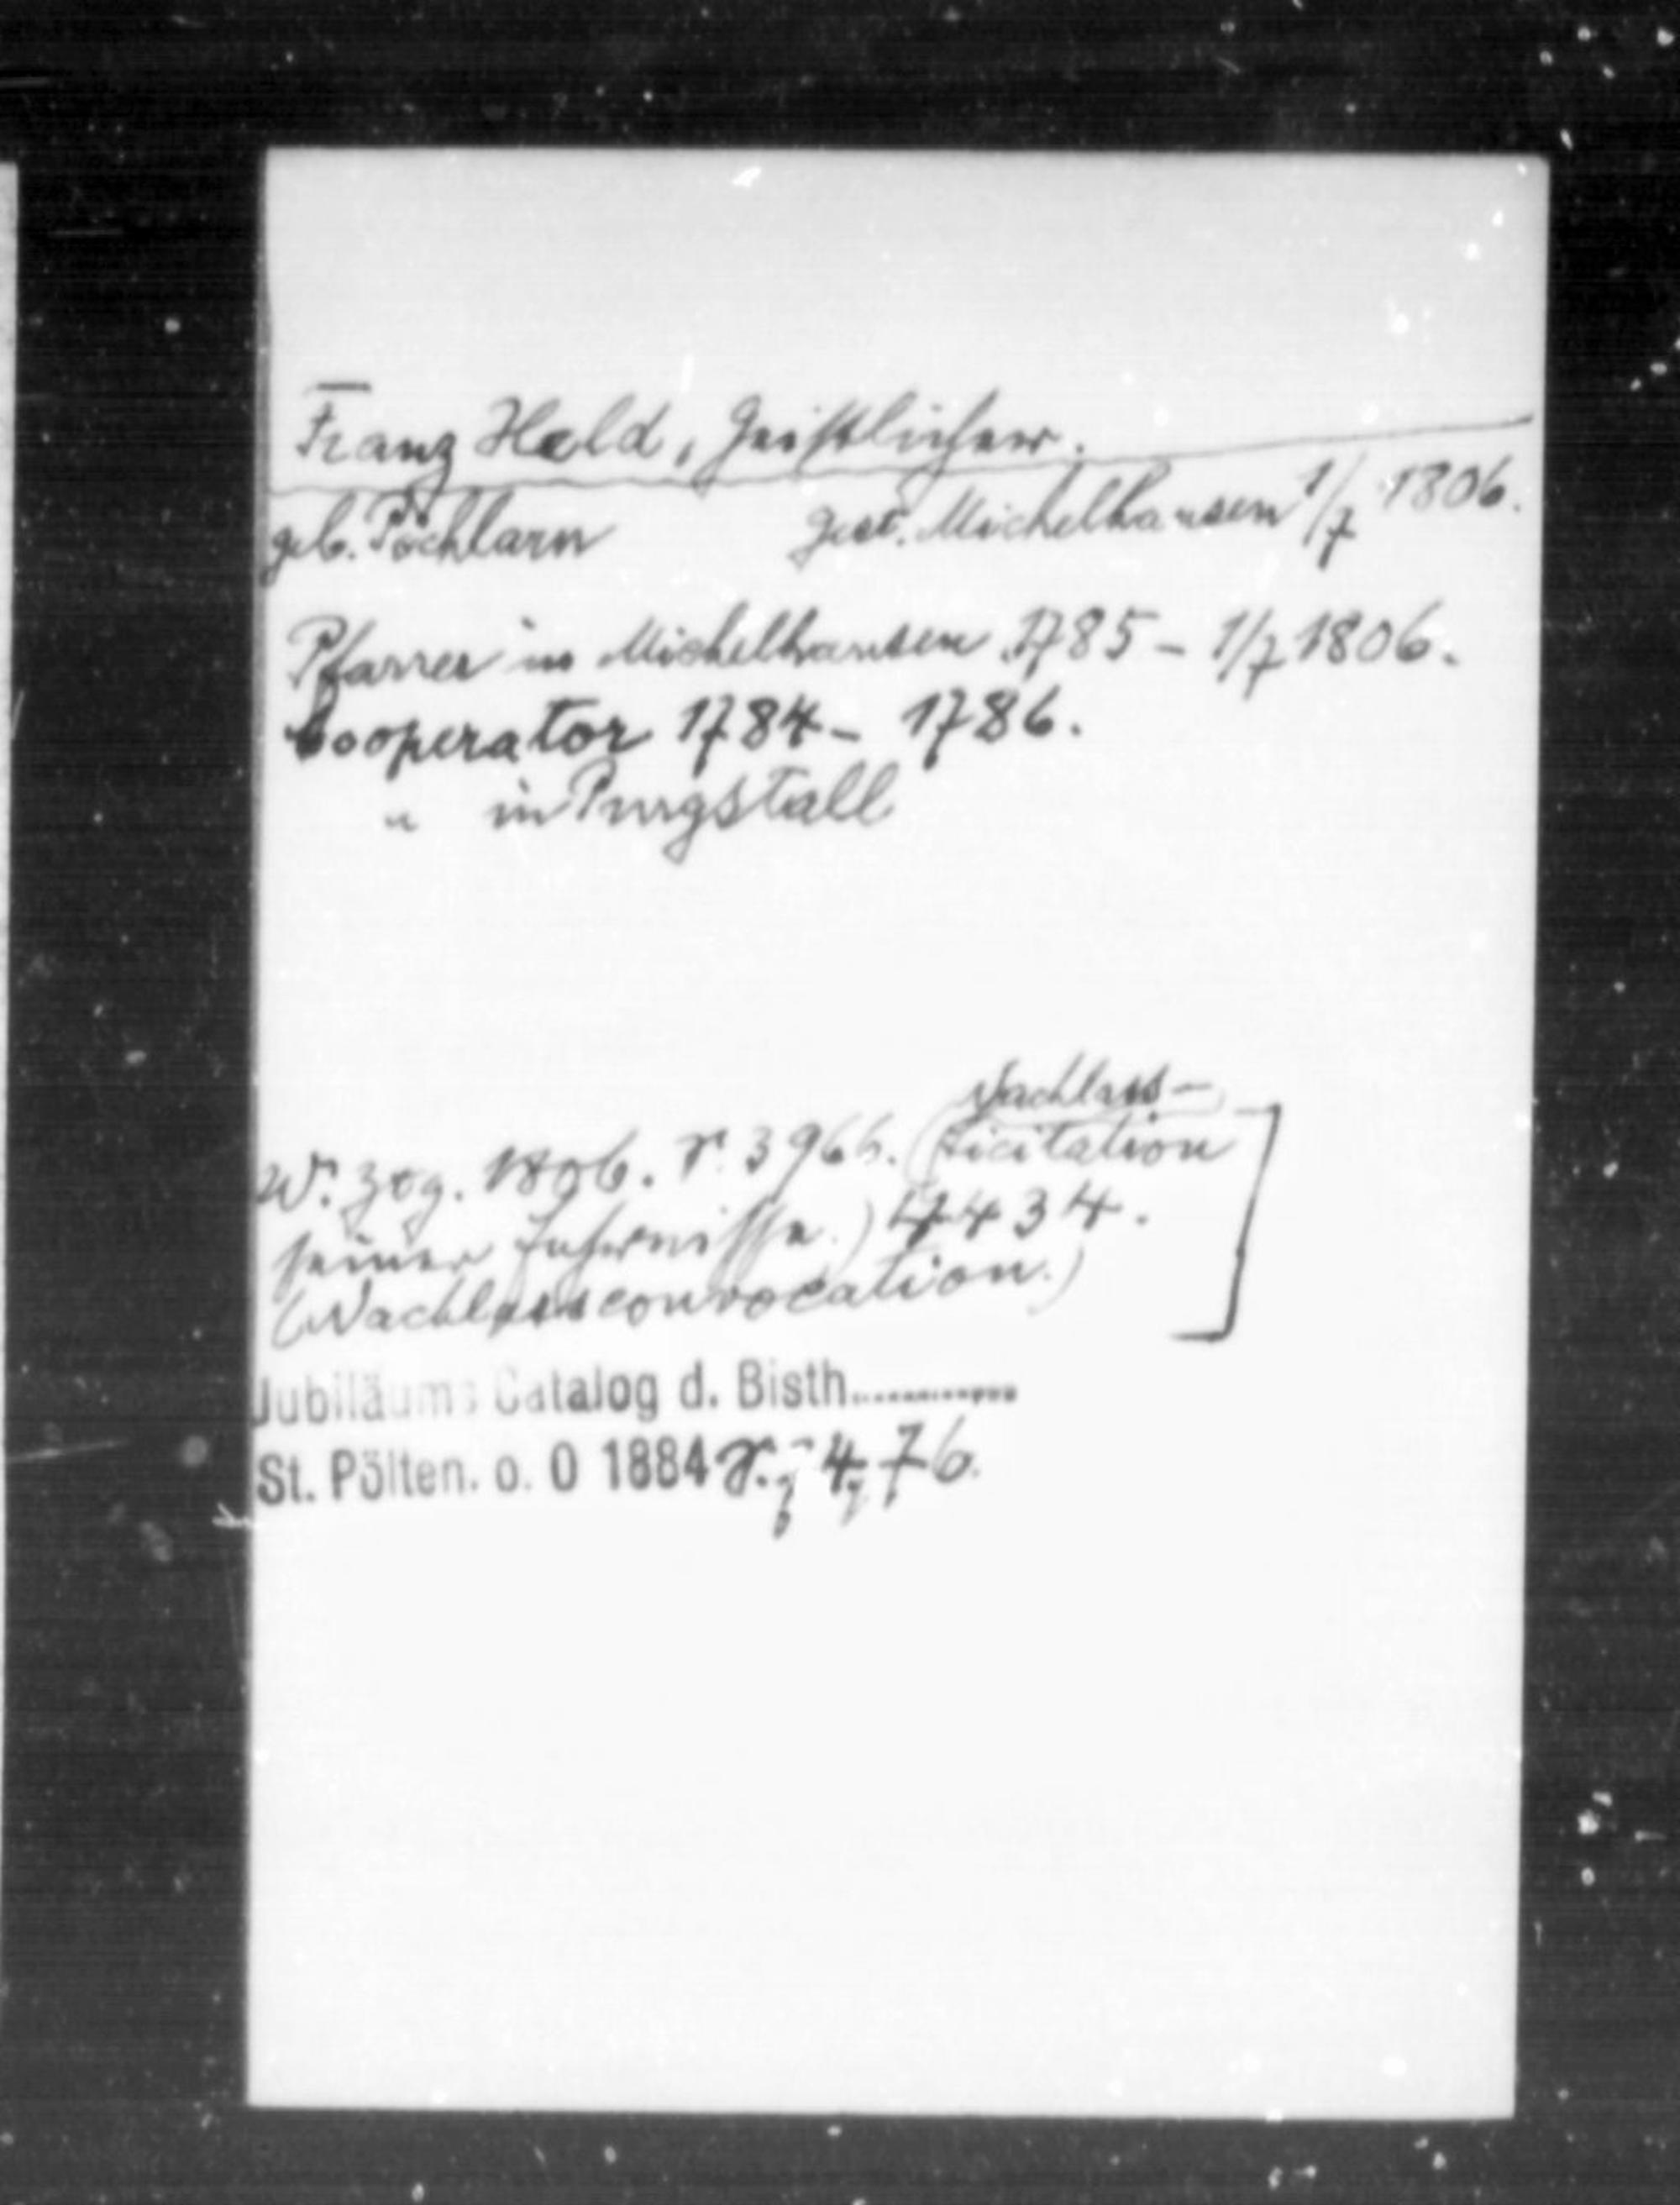 Franz Hold, Geistlicher.
geb. Pöchlarn gest. Michelhausen 1/7 1806.
Pfarrer in Michelhausen 1785 – 1/7 1806.
Cooperator 1784 – 1786.
" in Purgstall
Nachlass-
W. Ztg. 1806. S. 3966. (Licitation
seiner Fahrnisse.) 4434.
(Nachlassconvocation.)
Jubiläums Catalog d. Bisth...........
St. Pölten. o. O 1884 S. 76.